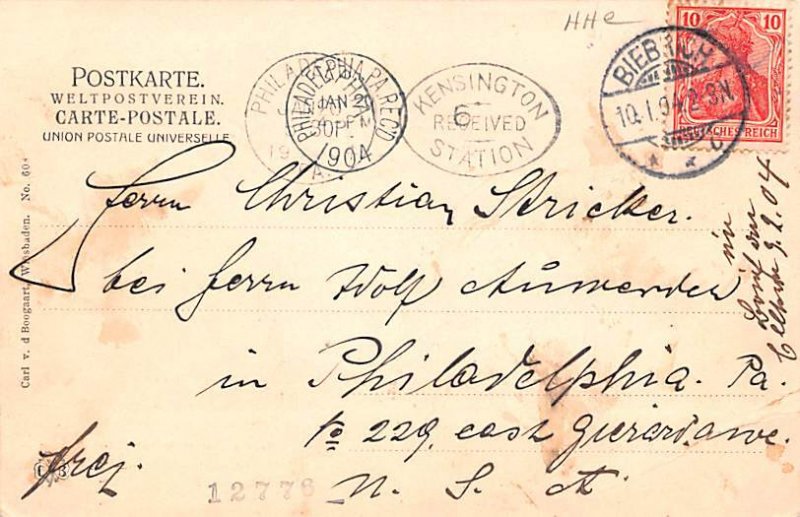 HHC
POSTKARTE.
WELTPOSTVEREIN.
CARTE-POSTALE.
UNION POSTALE UNIVERSELLE
PHILADELPHIA, PA. REC'D
JAN 2
1904
KENSINGTON
6
RECEIVED
STATION
BIEBRICH
10.1.04.2-3N.
10 10
DEUTSCHES REICH
Herrn Christian Stricker.
bei Herrn Wolf
in Philadelphia. Pa.
No 229. east
N. S. A
frei.
12776
Carl v. d Boogaart, Wiesbaden. No. 60